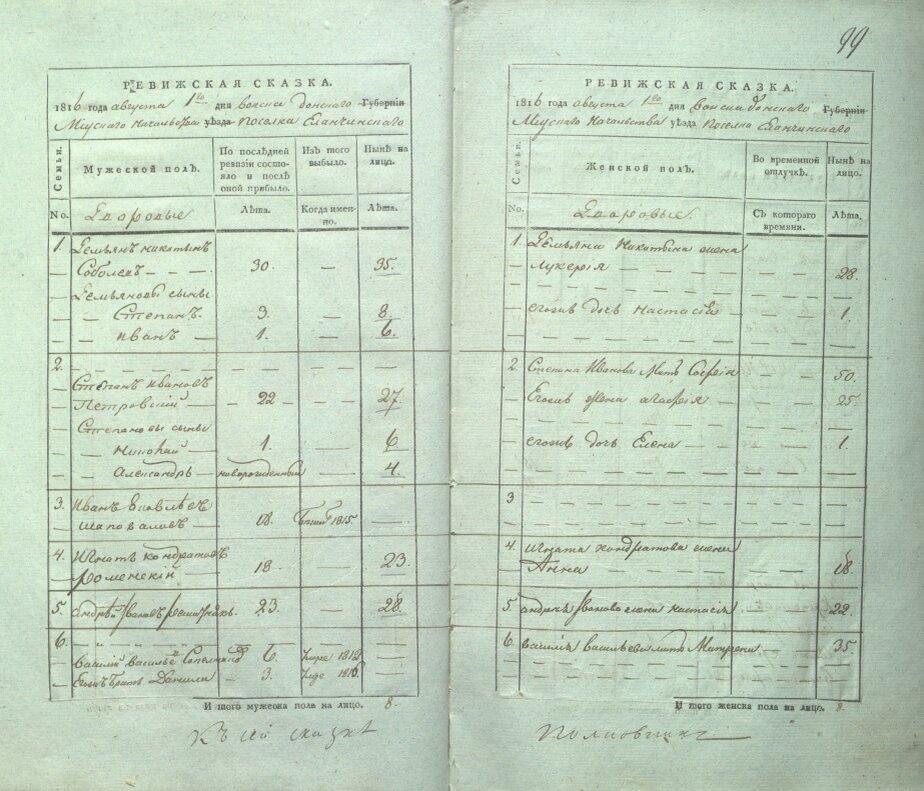 99
РЕВИЖСКАЯ СКАЗКА.
1816 года августа 1го дня войска донскаго Губернїи
Мїускаго Начальства уѣзда поселка Еланчинскаго
Семьи.
Мужеской полъ.
По послѣдней ревизїи состояло и послѣ оной прибыло.
Изъ того выбыло.
Нынѣ на лицо.
No.
Дворовые
Лѣта.
Когда именно.
Лѣта.
1. Демьянъ никитинъ
Соболевъ 30. 35.
Демьяновы сыны
Степанъ 3. 8.
иванъ 1. 6.
2.
Степанъ ивановъ
Петровскїй 22 27.
Степановы сыны
Николай 1. 6
Александръ новорожденный 4.
3. иванъ Яковлевъ
шаповаловъ 18. 1815
4. Игнатъ кондратовъ
Роменскїй 18 23.
5. Андрѣй Ивановъ 23. 28.
6.
василїй василье 6. 1812
Егожъ братъ Данила 3. 1816
И того мужеска пола на лицо. 8.
Къ сей сказкѣ
РЕВИЖСКАЯ СКАЗКА.
1816 года августа 1го дня войска донскаго Губернїи
Мїускаго Начальства уѣзда поселка Еланчинскаго
Семьи.
Женской полъ.
Во временной отлучкѣ.
Нынѣ на лицо.
No.
Дворовые.
Съ котораго времяни.
Лѣта.
1. Демьяна Никитина жена
Лукерїя 28.
егожъ дочь настасїя 1.
2. Степана Иванова Мать Софїя 50.
Егожъ жена агафїя 25.
егожъ дочь Елена 1
3
4. игната кондратова жена
Анна 18.
5 андрея Иванова жена настасїя 22.
6 василїя васильева мать Матрена 35.
И того женска пола на лицо. 8.
Полковникъ